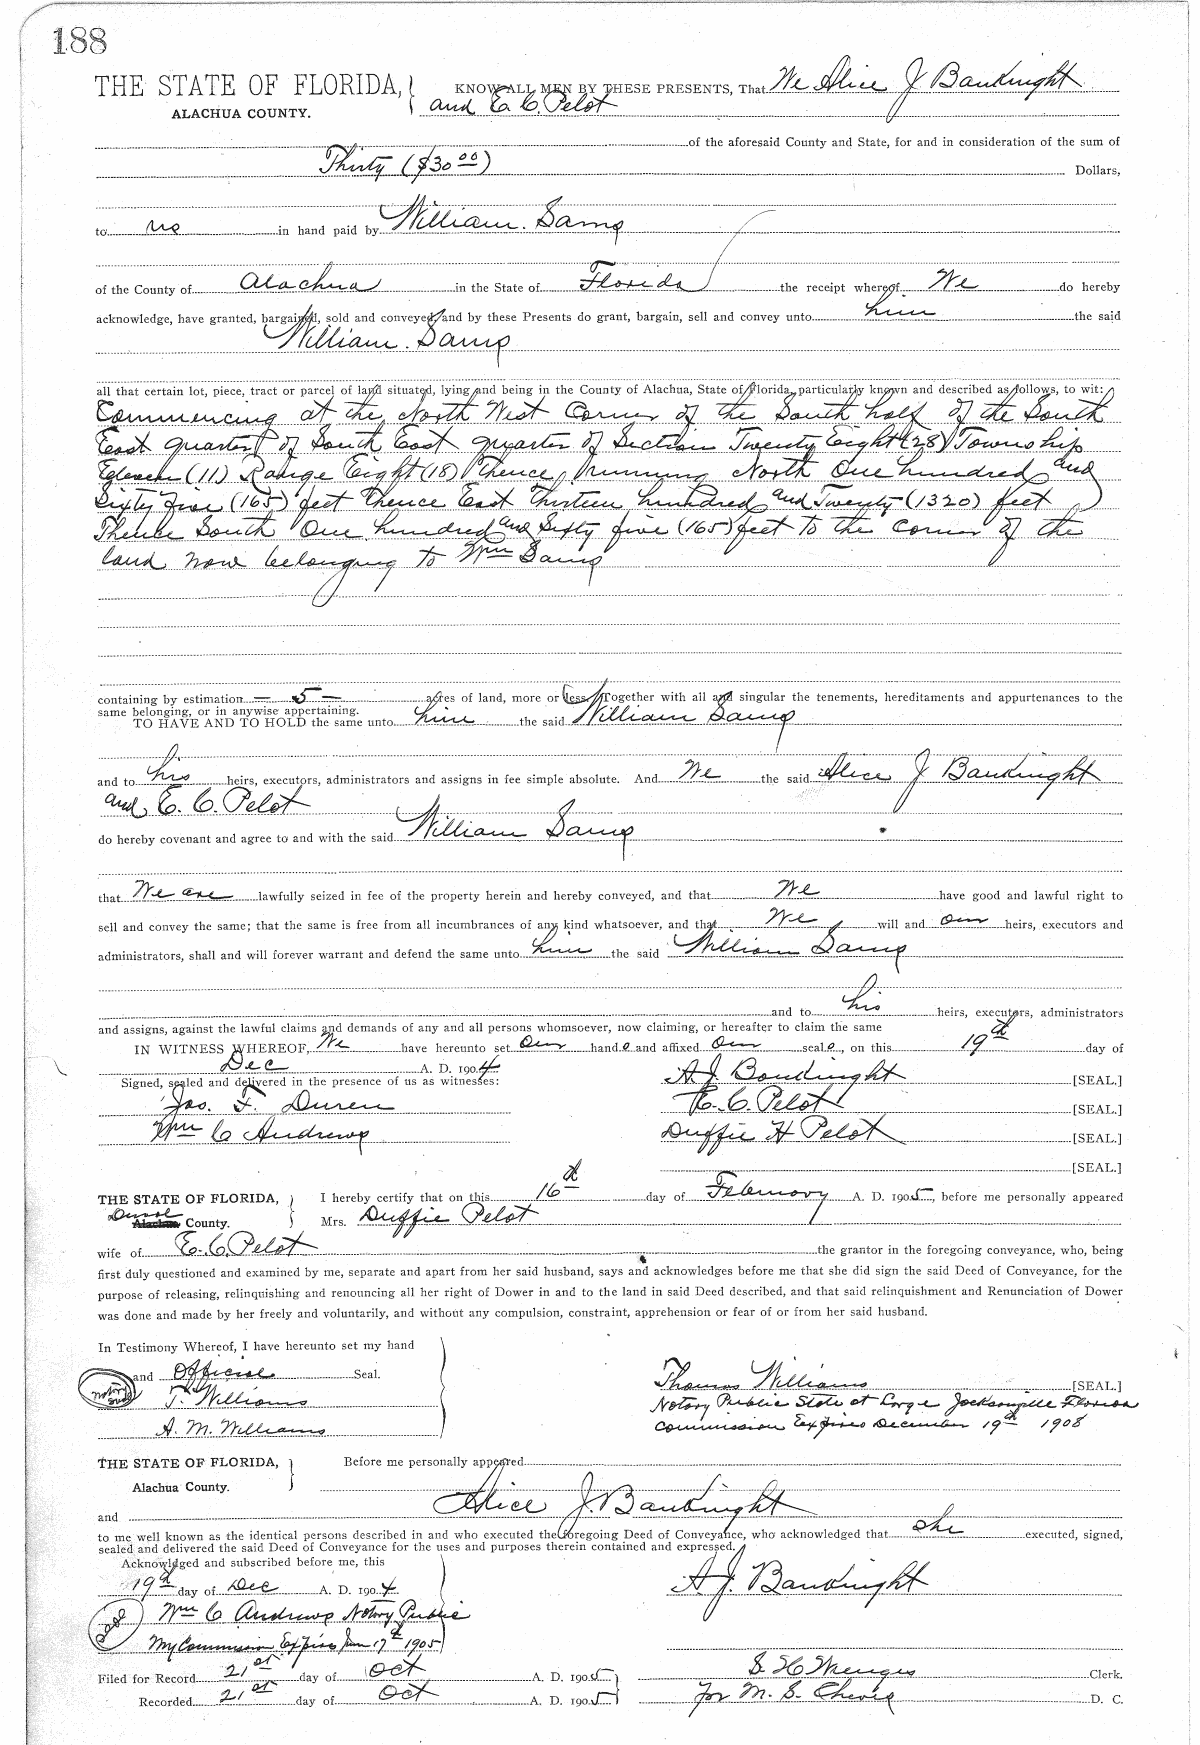 188
THE STATE OF FLORIDA, KNOW ALL MEN BY THESE PRESENTS, That We Alice J Bauknight
ALACHUA COUNTY. and E. C. Pelot
of the aforesaid County and State, for and in consideration of the sum of
Thirty ($30 00) Dollars,
to us in hand paid by William. Sams
of the County of Alachua in the State of Florida the receipt whereof We do hereby
acknowledge, have granted, bargained, sold and conveyed, and by these Presents do grant, bargain, sell and convey unto him the said
William. Sams
all that certain lot, piece, tract or parcel of land situated, lying and being in the County of Alachua, State of Florida, particularly known and described as follows, to wit:
Commencing at the North West Corner of the South half of the South
East quarter of South East quarter of Section Twenty Eight (28) Township
Eleven (11) Range Eight (18) Thence running North One hundred and
Sixty five (165) feet thence East Thirteen hundred and Twenty (1320) feet
Thence South One hundred and Sixty five (165) feet to the corner of the
land now belonging to Wm Sams
containing by estimation — 5 — acres of land, more or less. Together with all and singular the tenements, hereditaments and appurtenances to the
same belonging, or in anywise appertaining.
TO HAVE AND TO HOLD the same unto him the said William Sams
and to his heirs, executors, administrators and assigns in fee simple absolute. And We the said Alice J Bauknight
and E. C. Pelot
do hereby covenant and agree to and with the said William Sams
that We are lawfully seized in fee of the property herein and hereby conveyed, and that We have good and lawful right to
sell and convey the same; that the same is free from all incumbrances of any kind whatsoever, and that We will and our heirs, executors and
administrators, shall and will forever warrant and defend the same unto him the said William Sams
and to his heirs, executors, administrators
and assigns, against the lawful claims and demands of any and all persons whomsoever, now claiming, or hereafter to claim the same
IN WITNESS WHEREOF, We have hereunto set Our hands and affixed Our seals, on this 19th day of
Dec A. D. 1904
Signed, sealed and delivered in the presence of us as witnesses: A J Bauknight [SEAL.]
Jas. F. Duren E. C. Pelot [SEAL.]
Wm C Andrews Duffie H Pelot [SEAL.]
[SEAL.]
THE STATE OF FLORIDA, I hereby certify that on this 16th day of February A. D. 1905, before me personally appeared
Duval Alachua County. Mrs. Duffie Pelot
wife of E. C. Pelot the grantor in the foregoing conveyance, who, being
first duly questioned and examined by me, separate and apart from her said husband, says and acknowledges before me that she did sign the said Deed of Conveyance, for the
purpose of releasing, relinquishing and renouncing all her right of Dower in and to the land in said Deed described, and that said relinquishment and Renunciation of Dower
was done and made by her freely and voluntarily, and without any compulsion, constraint, apprehension or fear of or from her said husband.
In Testimony Whereof, I have hereunto set my hand
and Official Seal. Thomas Williams [SEAL.]
Notary Seal T. Williams Notary Public State at Large Jacksonville Florida
A. M. Williams Commission Expires December 19th 1908
THE STATE OF FLORIDA, Before me personally appeared
Alachua County.
and Alice J. Bauknight
to me well known as the identical persons described in and who executed the foregoing Deed of Conveyance, who acknowledged that she executed, signed,
sealed and delivered the said Deed of Conveyance for the uses and purposes therein contained and expressed.
Acknowldged and subscribed before me, this
19th day of Dec A. D. 1904 A J. Bauknight
Seal Wm C Andrews Notary Public
My Commission Expires Jan 17th 1905
Filed for Record 21st day of Oct A. D. 1905 S. H. Wienges Clerk.
Recorded 21st day of Oct A. D. 1905 for M. S. D. C.